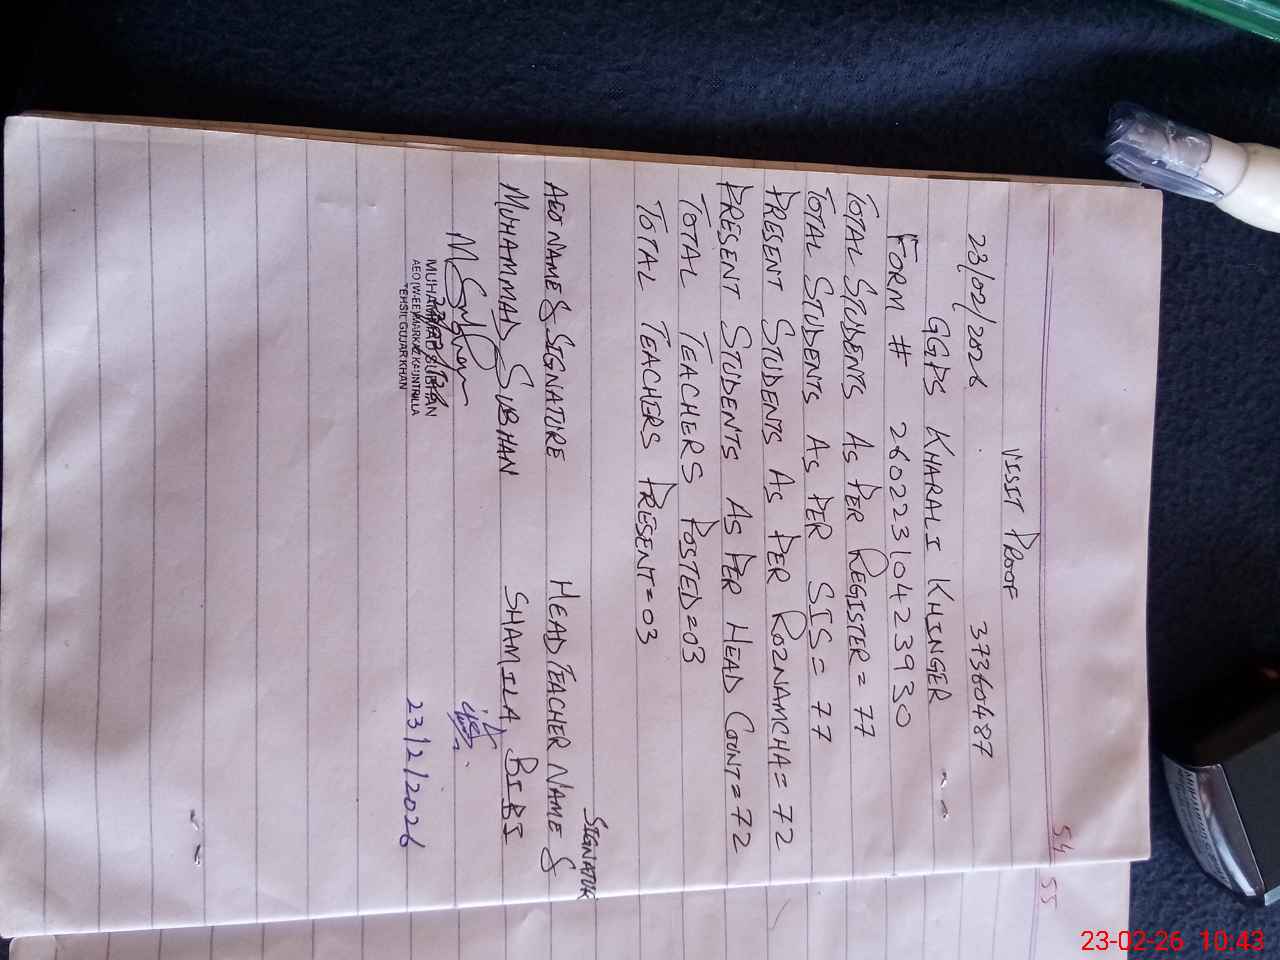 54
55
VISIT PROOF
23/02/2026 37360487
GGPS KHARALI KHINGER
FORM # 260223104239930
TOTAL STUDENTS AS PER REGISTER = 77
TOTAL STUDENTS AS PER SIS = 77
PRESENT STUDENTS AS PER ROZNAMCHA = 72
PRESENT STUDENTS AS PER HEAD COUNT = 72
TOTAL TEACHERS POSTED = 03
TOTAL TEACHERS PRESENT = 03
SIGNATURE
AEO NAME & SIGNATURE HEAD TEACHER NAME &
MUHAMMAD SUBHAN SHAMILA BIBI
MSubhan
MUHAMMAD SUBHAN
AEO (W-EE) MARKAZ KAUNTRILLA
TEHSIL GUJAR KHAN
23/2/2026
23-02-26 10:43